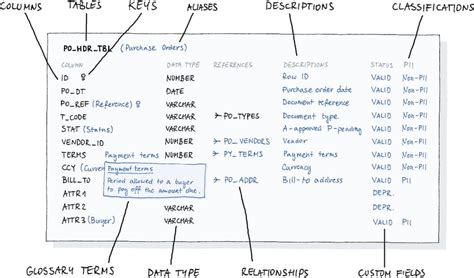 COLUMNS TABLES KEYS ALIASES DESCRIPTIONS CLASSIFICATIONS
PO_HDR_TBL (Purchase Orders)
COLUMN DATA TYPE REFERENCES DESCRIPTIONS STATUS PII
ID NUMBER Row ID VALID Non-PII
PO_DT DATE Purchase order date VALID Non-PII
PO_REF (Reference) VARCHAR Document reference VALID Non-PII
T_CODE VARCHAR PO_TYPES Document type VALID Non-PII
STAT (Status) VARCHAR A-approved P-pending VALID Non-PII
VENDOR_ID NUMBER PO_VENDORS Vendor VALID Non-PII
TERMS Payment terms NUMBER PY_TERMS Payment terms VALID Non-PII
CCY (Curren Payment terms VARCHAR Currency VALID Non-PII
BILL_TO Period allowed to a buyer PO_ADDR Bill-to address VALID PII
to pay off the amount due.
ATTR1 DEPR.
ATTR2 VARCHAR DEPR.
ATTR3 (Buyer) VARCHAR VALID PII
GLOSSARY TERMS DATA TYPE RELATIONSHIPS CUSTOM FIELDS